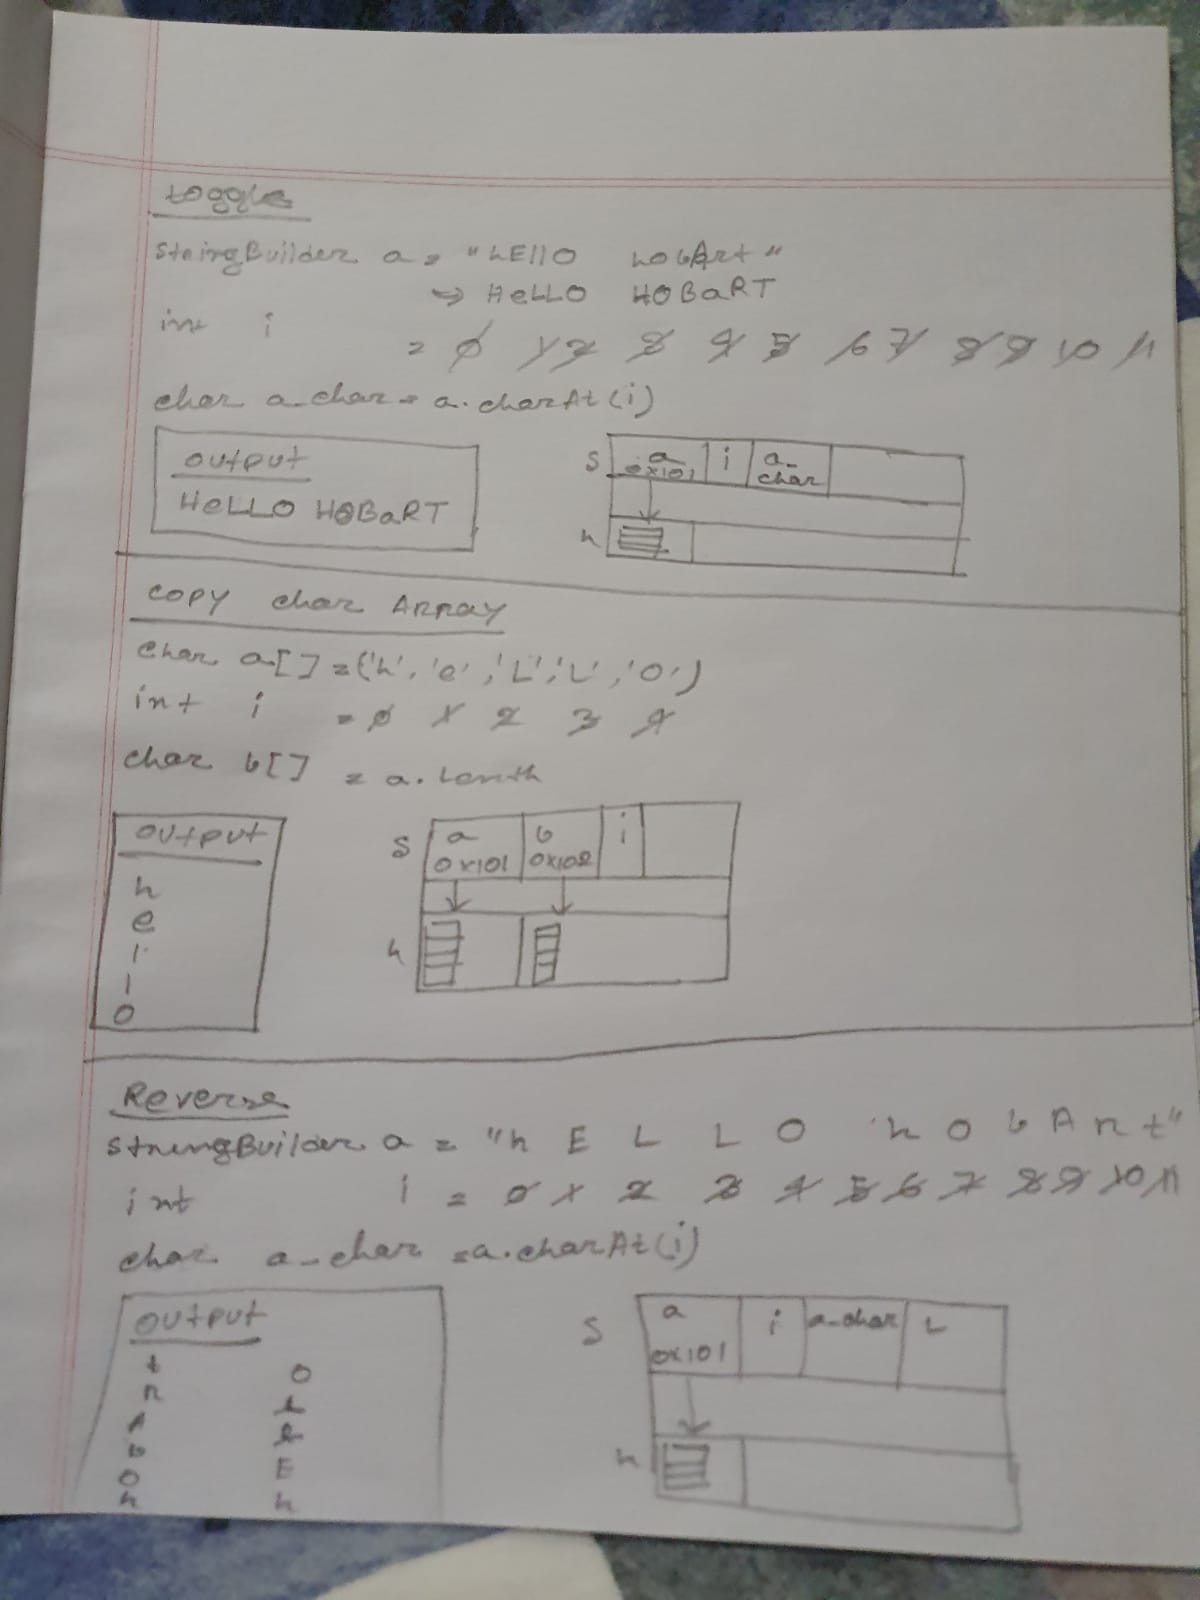 toggle
StringBuilder a = "hEllo hobArt"
→ HeLLO HOBaRT
int i
= 0 1 2 3 4 5 6 7 8 9 10 11
char a_char = a.charAt(i)
output
HeLLO HOBaRT
S a 0x101 i a_char
h
COPY char ARRAY
char a[] = ('h', 'e', 'L', 'L', 'O')
int i = 0 1 2 3 4
char b[] = a.
output
h
e
l
l
o
S a 0x101 b 0x102 i
h
Reverse
StringBuilder a = "h E L L O h o b A r t"
int i = 0 1 2 3 4 5 6 7 8 9 10 11
char a_char = a.charAt(i)
output
t
R
A
b
O
h
O
L
E
h
S a 0x101 i a_char L
h